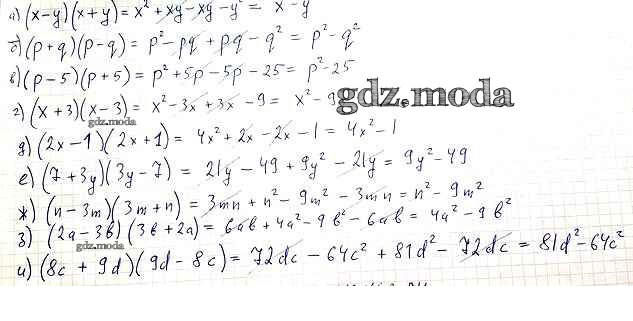 а) (x-y)(x+y) = x² + xy - xy - y² = x² - y²
б) (p+q)(p-q) = p² - pq + pq - q² = p² - q²
в) (p-5)(p+5) = p² + 5p - 5p - 25 = p² - 25
г) (x+3)(x-3) = x² - 3x + 3x - 9 = x² - 9
gdz.moda
gdz.moda
д) (2x-1)(2x+1) = 4x² + 2x - 2x - 1 = 4x² - 1
е) (7+3y)(3y-7) = 21y - 49 + 9y² - 21y = 9y² - 49
ж) (n-3m)(3m+n) = 3mn + n² - 9m² - 3mn = n² - 9m²
з) (2a-3b)(3b+2a) = 6ab + 4a² - 9b² - 6ab = 4a² - 9b²
gdz.moda
и) (8c + 9d)(9d - 8c) = 72dc - 64c² + 81d² - 72dc = 81d² - 64c²